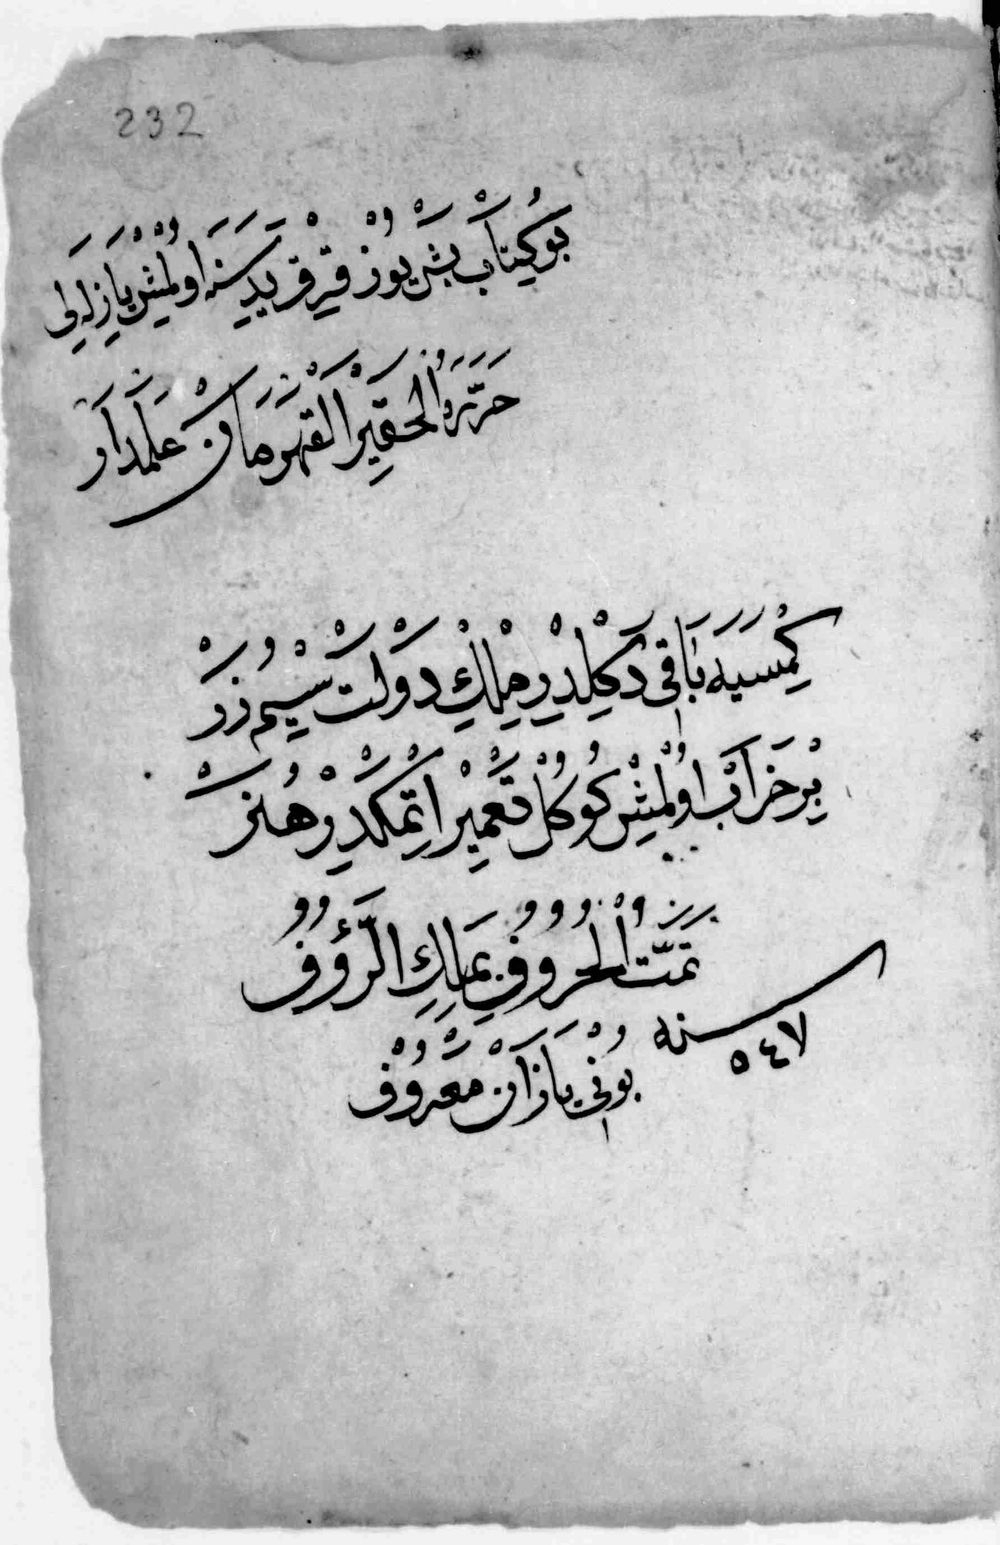 232
بُوكِيتَابْ بَشْ يُوزْ قِرْقْ يَدِي سَنَه اَوُلْمِيشْ يَازِلَه لِى
حَرَّرَهُ الْحَقِيرْ الْقَهْرَمَانْ عَلَمْدَارْ
كِمْسَيَه بَاقِى دَكِلْدِرْ مِلْكِ دَوْلَتْ سِيمُ زَرْ
بِرْ خَرَابْ اوُلْمِشْ كُوكُلْ تَعْمِيرْ اِتْمَكْدِرْ هُنَرْ
تَمَّتَ الْحُرُوفِ بِمَلِكِ الرَّؤُوفُ
سنه ٥٤٧
بُونِى يَازَانْ مَعْرُوفْ